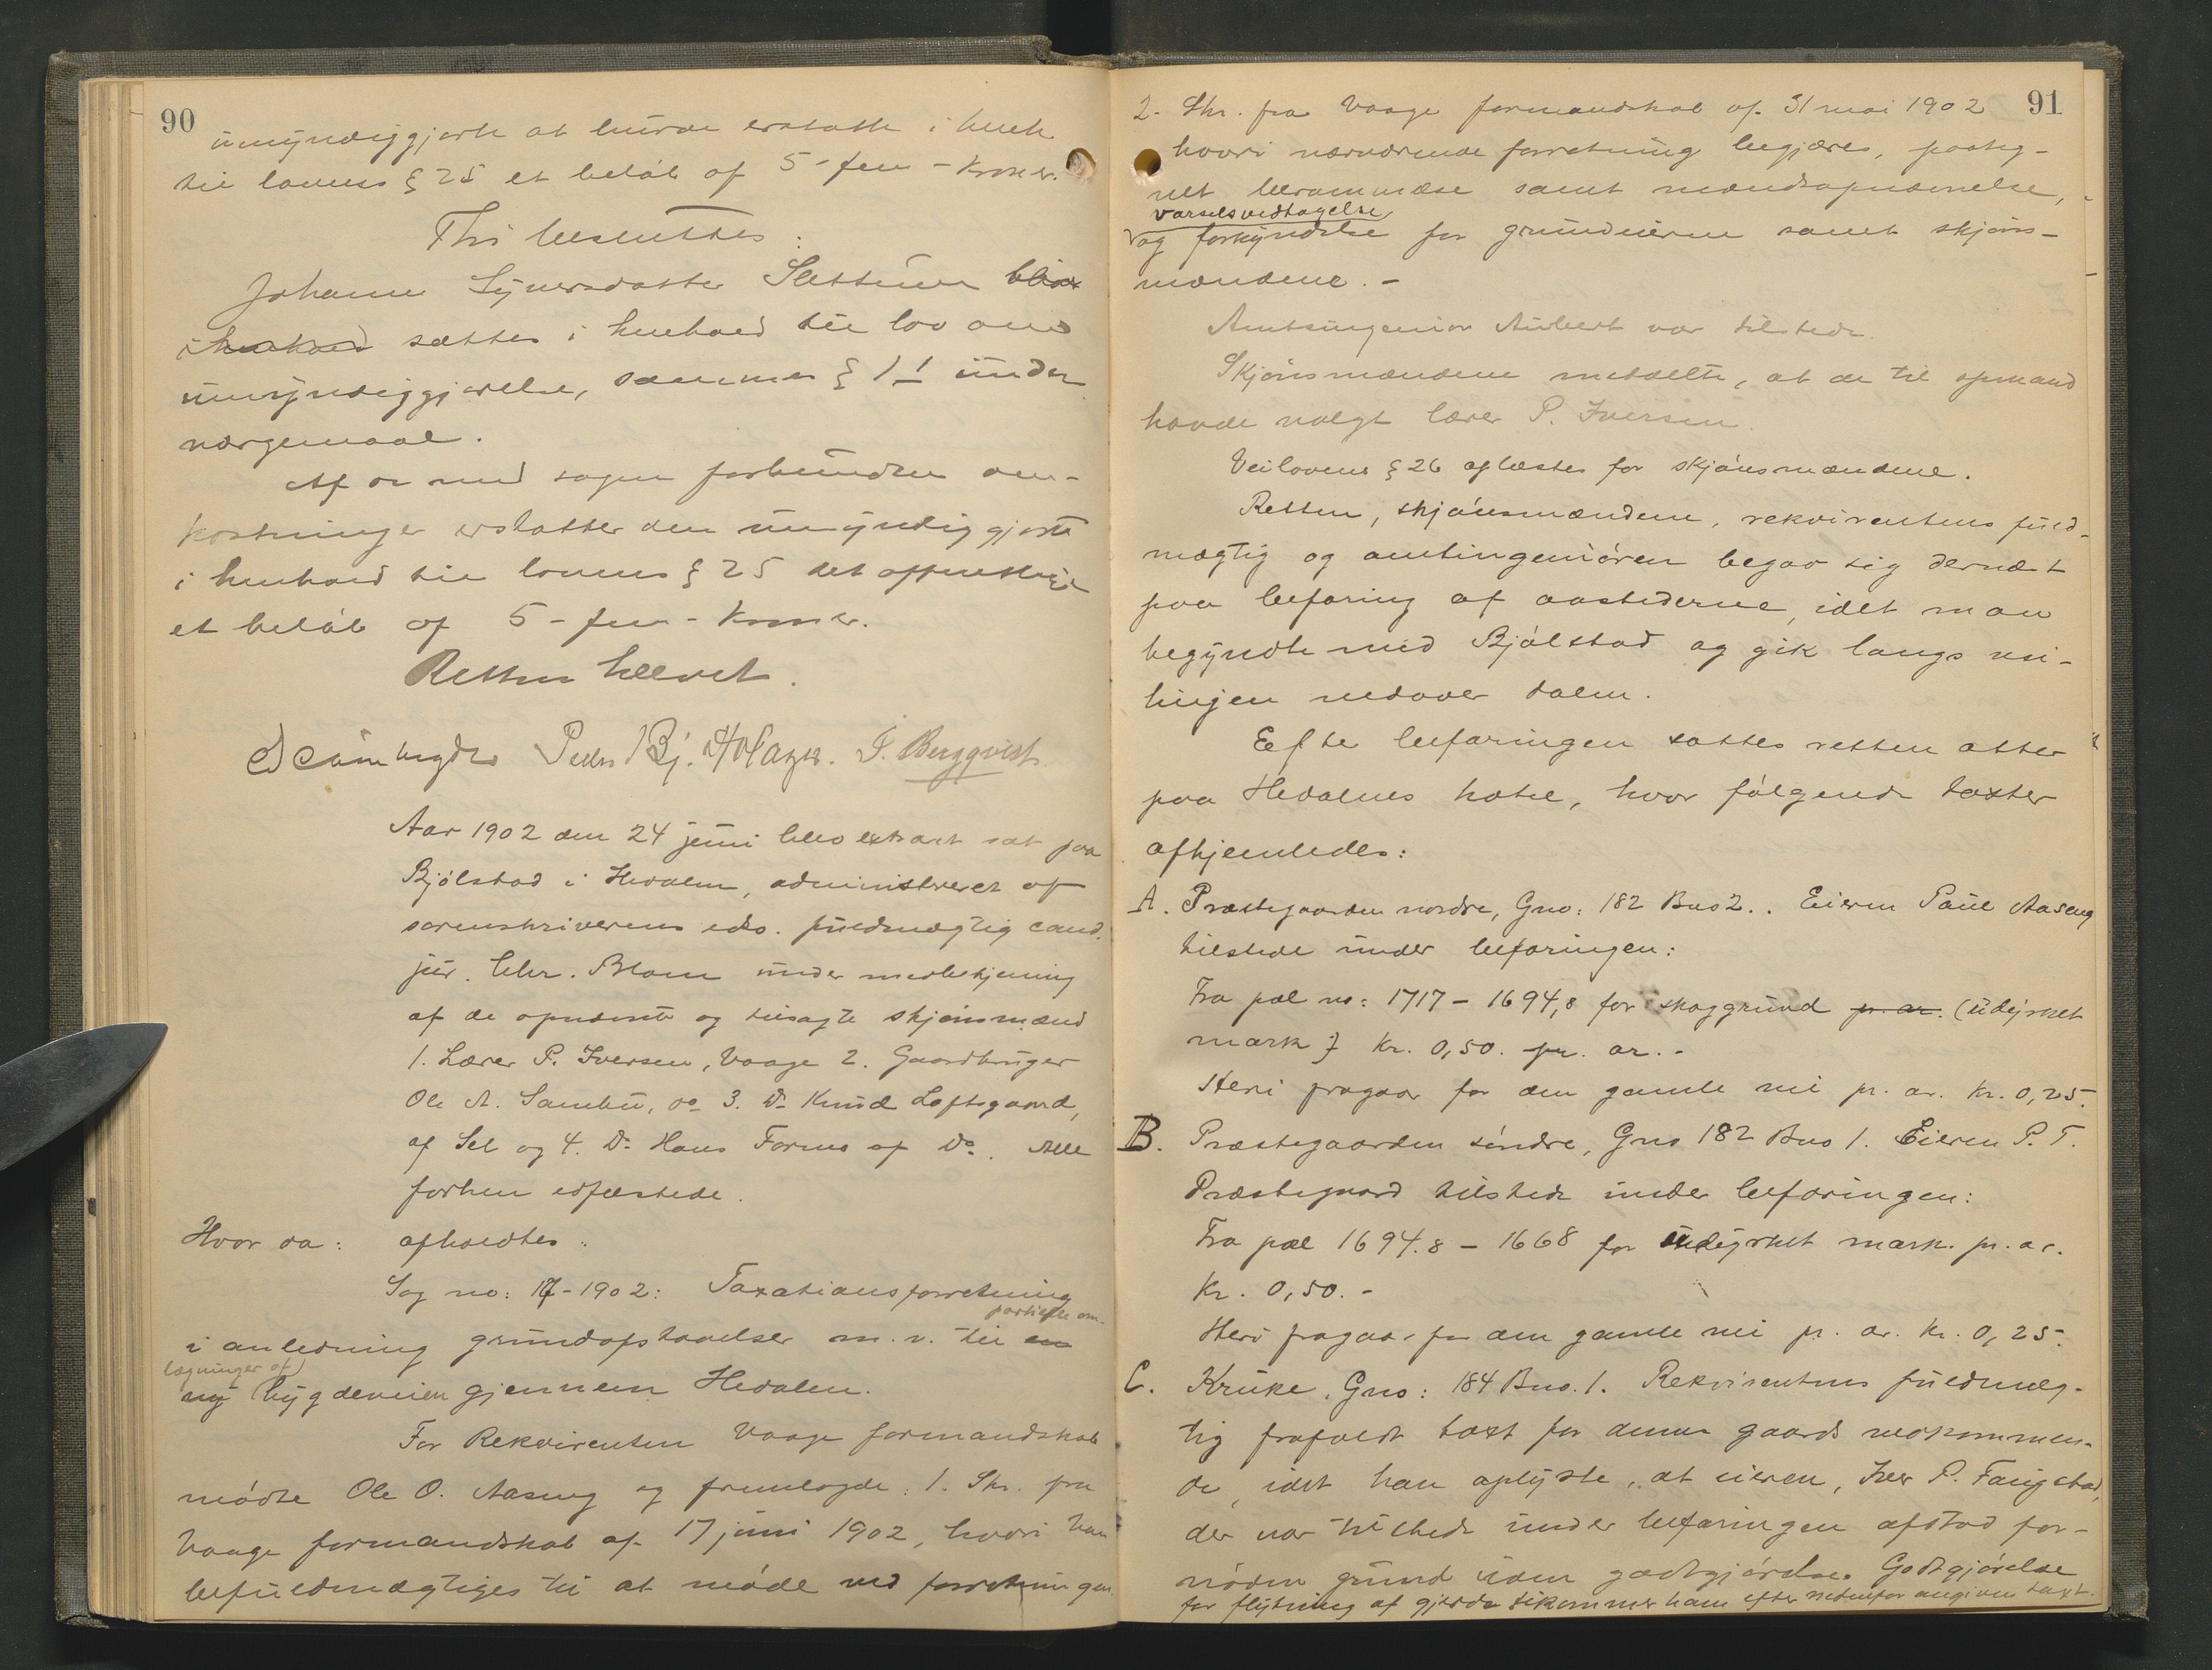 90
umyndiggjorte at burde erstatte i henh.
til lovens § 25 et beløb af 5 - fem - kroner.
Thi besluttes:
Johanne Syversdatter Slettum bliver
i henhold sættes i henhold til lov om
umyndiggjørelse, sammes § 11 under
værgemaal.
Af de med sagen forbundne om-
kostninger erstatter den umyndiggjorte
i henhold til lovens § 25 det offentlige
et beløb af 5 - fem - kroner.
Retten hævet.
Peder Bj. I. Bergqvist.
Aar 1902 den 24 juni blev extraret sat paa
Bjølstad i Hedalen, administreret af
sorenskriverens eds. fuldmægtig cand.
jur. Chr. Blom under medbetjening
af de opnævnte og tilsagte skjønsmænd
1. Lærer P. Iversen, Vaage 2. Gaardbruger
Ole A. Sambu, do 3. Do Knud Loftsgaard,
af Sel og 4. Do Hans Formo af Do. Alle
forhen edfæstede.
Hvor da: afholdtes:
Sag no: 17-1902: Taxationsforretning
partielle om-
i anledning grundafstaaelser m. v. til en
lægninger af
ny bygdeveien gjennem Hedalen.
For Rekvirenten Vaage formandskab
mødte Ole O. Aaseng og fremlagde: 1. Skr. fra
Vaage formandskab af 17 juni 1902, hvori han
befuldmægtiges til at møde ved forretningen.
91
2. Skr. fra Vaage formandskab af 31 mai 1902
hvori nærværende forretning begjæres, paateg-
net berammelse samt mændsopnævnelse,
varselsvedtagelse
og forkyndelse for grundeierne samt skjøns-
mændene. -
Amtsingeniør Aubert var tilstede.
Skjønsmændene meddelte, at de til opmand
havde valgt lærer P. Iversen.
Veilovens § 26 oplæstes for skjønsmændene.
Retten, skjønsmændene, rekvirentens fuld-
mægtig og amtingeniøren begav sig dernæst
paa befaring af aastederne, idet man
begyndte med Bjølstad og gik langs vei-
linjen nedover dalen.
Efter befaringen sattes retten atter
paa Hedalens hotel, hvor følgende taxter
afhjemledes:
A. Præstegaarden nordre, Gno: 182 Bno 2.. Eieren Paul Aaseng
tilstede under befaringen:
Fra pæl no: 1717 - 1694,8 for skoggrund pr. ar. (udyrket
mark) kr. 0,50. pr. ar. -
Heri fragaar for den gamle vei pr. ar. kr. 0,25.
B. Præstegaarden søndre, Gno 182 Bno 1. Eieren P. T.
Præstegaard tilstede under befaringen:
Fra pæl 1694.8 - 1668 for udyrket mark pr. ar.
kr. 0,50. -
Heri fragaar for den gamle vei pr. ar. kr. 0,25.
C. Kruke, Gno: 184 Bno. 1. Rekvirentens fuldmæg-
tig frafaldt taxt for denne gaards vedkommen-
de, idet han oplyste, at eieren, Iver P. Faugstad,
der var tilstede under befaringen afstod for-
nøden grund uden godtgjørelse. Godtgjørelse
for flytning af gjærde tilkommer ham efter nedenfor angiven taxt.